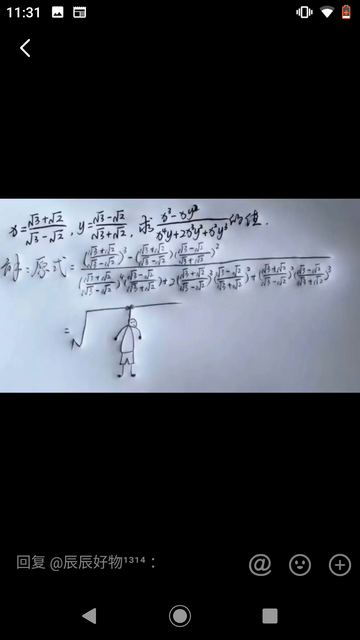 11:31
x=(√3+√2)/(√3-√2), y=(√3-√2)/(√3+√2), 求 (x³-xy²)/(x⁴y+2x³y²+x²y³) 的值.
解:原式= ((√3+√2)/(√3-√2))³-((√3+√2)/(√3-√2))((√3-√2)/(√3+√2))² / ((√3+√2)/(√3-√2))⁴((√3-√2)/(√3+√2))+2((√3+√2)/(√3-√2))³((√3-√2)/(√3+√2))²+((√3+√2)/(√3-√2))²((√3-√2)/(√3+√2))³
=√
回复 @辰辰好物¹³¹⁴：